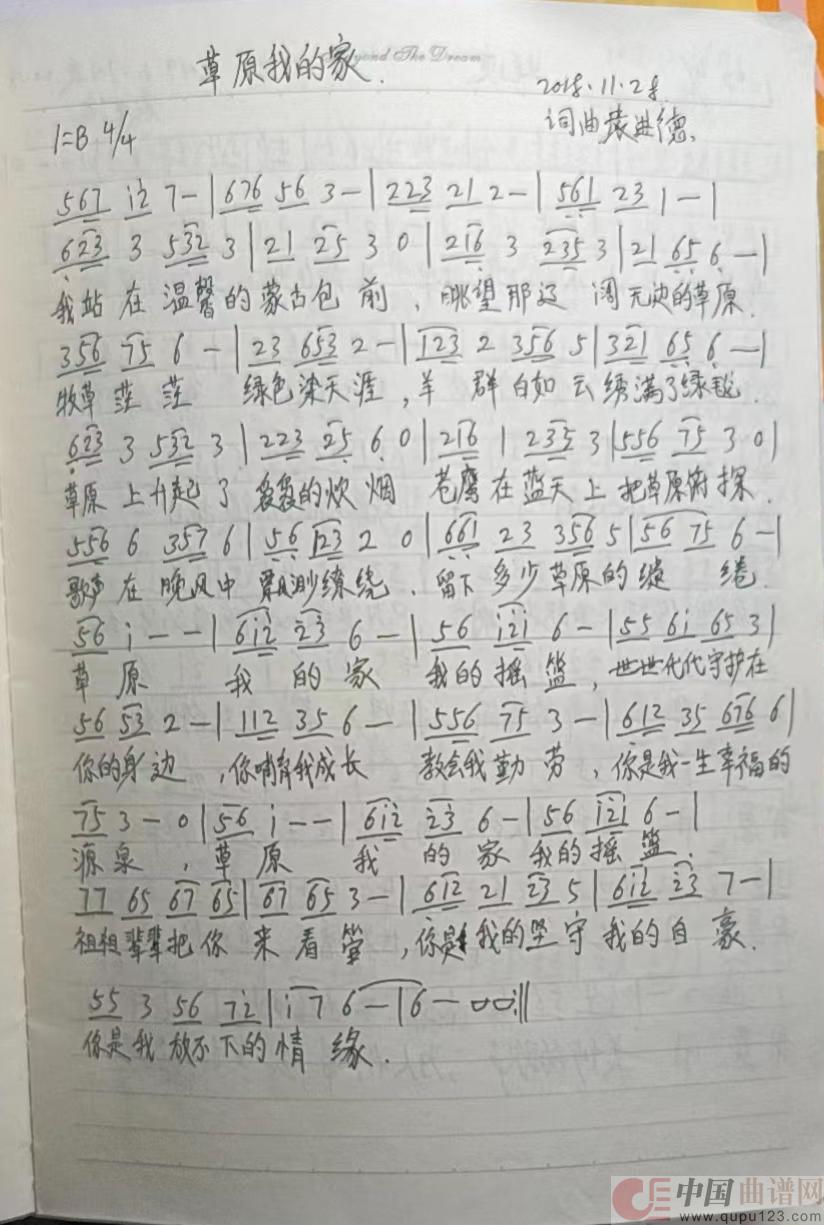 草原我的家
Beyond The Dream
2018.11.28.
词曲 袁进德
1=B 4/4
567 i2 7-|676 56 3-|223 21 2-|561 23 1-|
623 3 532 3|21 25 3 0|216 3 235 3|21 65 6 -|
我站在温馨的蒙古包前,眺望那辽阔无边的草原.
356 75 6 -|23 653 2-|123 2 356 5|321 65 6 -|
牧草茫茫 绿色染天涯,羊群白如云绣满了绿毯.
623 3 532 3|223 25 6 0|216 1 235 3|556 75 3 0|
草原上升起了袅袅的炊烟 苍鹰在蓝天上把草原俯探.
556 6 357 6|56 123 2 0|661 23 356 5|56 75 6-|
歌声在晚风中飘渺缭绕,留下多少草原的缱绻.
56 i - - |6i2 23 6 -|56 i2i 6 -|55 6i 65 3|
草原 我的家 我的摇篮,世世代代守护在
56 53 2 -|112 35 6 -|556 75 3 -|612 35 676 6|
你的身边,你哺育我成长 教会我勤劳,你是我一生幸福的
75 3 - 0|56 i - -|6i2 23 6 -|56 i2i 6 -|
源泉,草原 我的家 我的摇篮.
77 65 67 65|67 65 3 -|612 21 23 5|6i2 23 7 -|
祖祖辈辈把你来看管,你是我的坚守我的自豪.
55 3 56 7i|i 7 6 -|6 - 00:||
你是我放不下的情缘.
中国曲谱网
www.qupu123.com